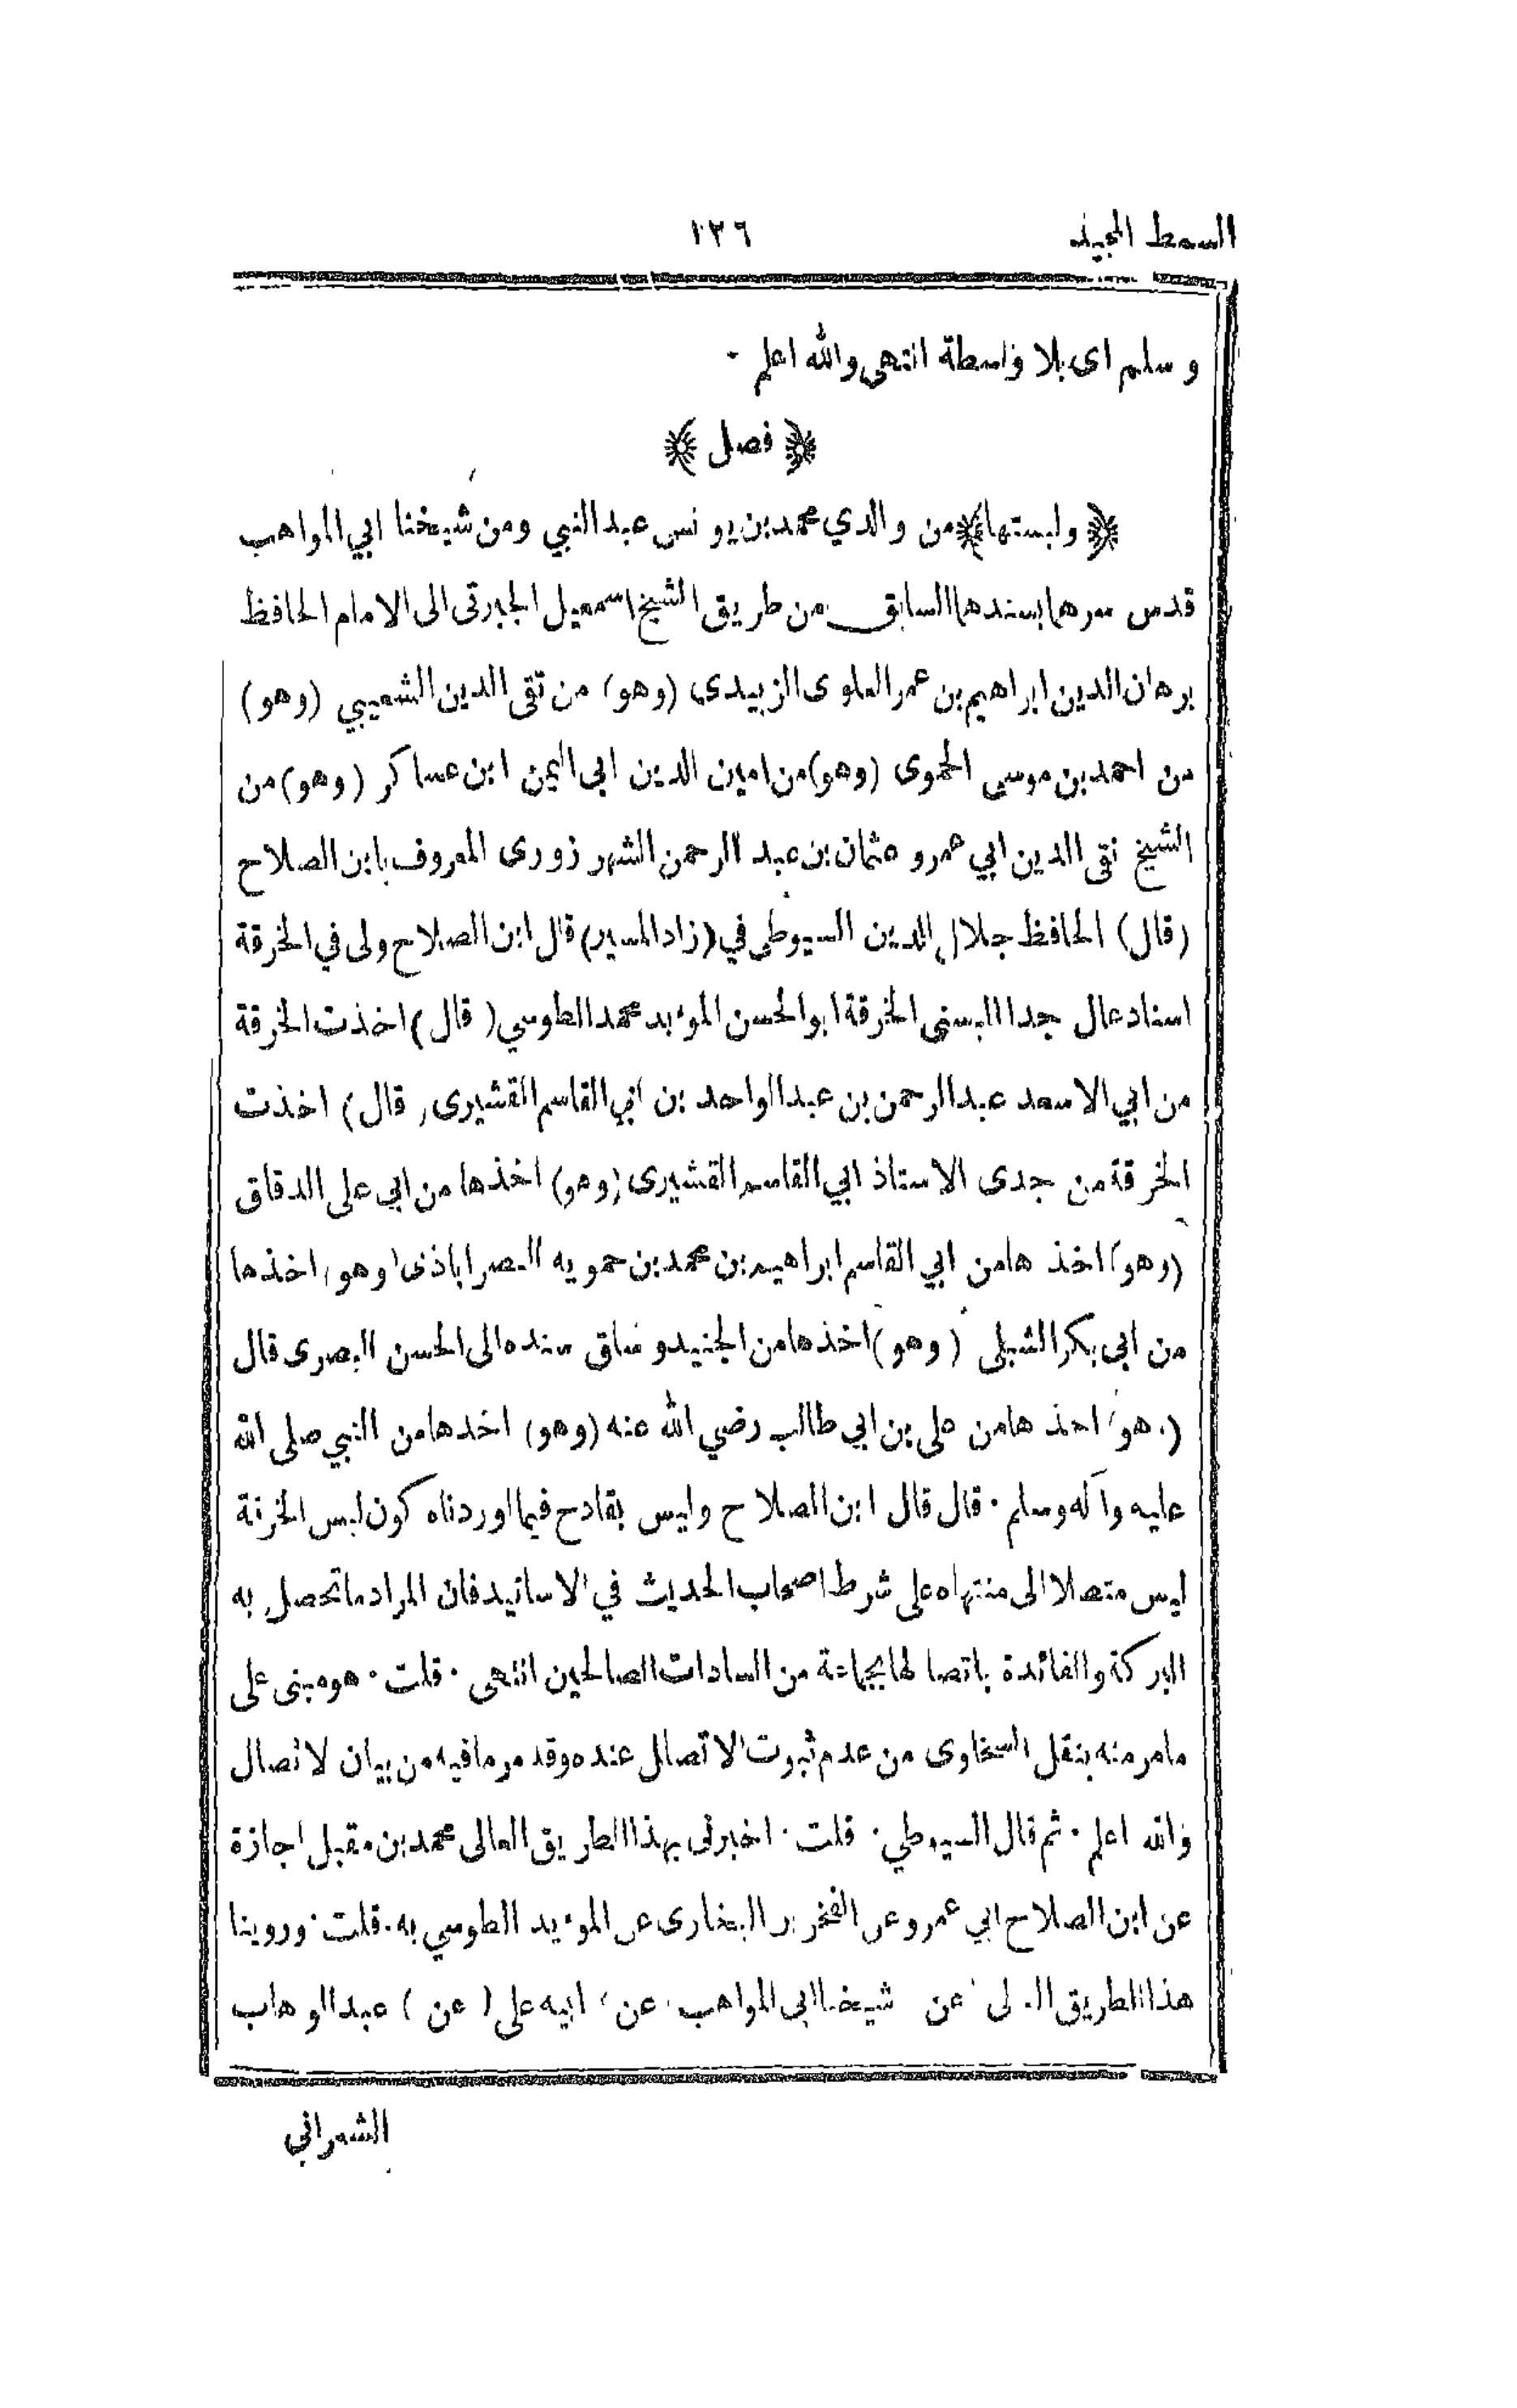 السمط المجيد ١٣٦
وسلم اى بلا واسطة انتهى والله اعلم ٠
﴿ فصل ﴾
﴿ ولبستها﴾ من والدي محمد بن يونس عبد النبي ومن شيخنا ابي المواهب
قدس سرهما بسندهما السابق من طريق الشيخ اسمعيل الجبرتى الى الامام الحافظ
برهان الدين ابراهيم بن عمر العلوى الزبيدى (وهو) من تقى الدين الشعيبي (وهو)
من احمد بن موسى الحموى (وهو) من امين الدين ابى اليمن ابن عساكر (وهو) من
الشيخ تقى الدين ابي عمرو عثمان بن عبد الرحمن الشهرزورى المعروف بابن الصلاح
(قال) الحافظ جلال الدين السيوطى في (زاد المسير) قال ابن الصلاح ولى في الخرقة
اسناد عال جدا البسنى الخرقة ابو الحسن المؤيد محمد الطوسي (قال) اخذت الخرقة
من ابي الاسعد عبد الرحمن بن عبد الواحد بن ابي القاسم القشيرى (قال) اخذت
الخرقة من جدى الاستاذ ابي القاسم القشيرى (وهو) اخذها من ابي على الدقاق
(وهو) اخذها من ابي القاسم ابراهيم بن محمد بن حمويه النصراباذى (وهو) اخذها
من ابى بكر الشبلى (وهو) اخذها من الجنيد وساق سنده الى الحسن البصرى قال
(وهو) اخذها من على بن ابي طالب رضي الله عنه (وهو) اخذها من النبي صلى الله
عليه وآله وسلم ٠ قال قال ابن الصلاح وليس بقادح فيما اوردناه كون لبس الخرقة
ليس متصلا الى منتهاه على شرط اصحاب الحديث في الاسانيد فان المراد ما تحصل به
البركة والفائدة باتصالها بجماعة من السادات الصالحين انتهى ٠ قلت ٠ هو مبنى على
مامر منه بنقل السخاوى من عدم ثبوت الاتصال عنده وقد مر ما فيه من بيان لاتصال
والله اعلم ٠ ثم قال السيوطي ٠ قلت ٠ اخبرنى بهذا الطريق العالى محمد بن مقبل اجازة
عن ابن الصلاح ابي عمرو عن الفخر بن البخارى عن المؤيد الطوسي به ٠ قلت ٠ وروينا
هذا الطريق عن شيخنا ابى المواهب (عن) ابيه على (عن) عبد الوهاب
الشعراني